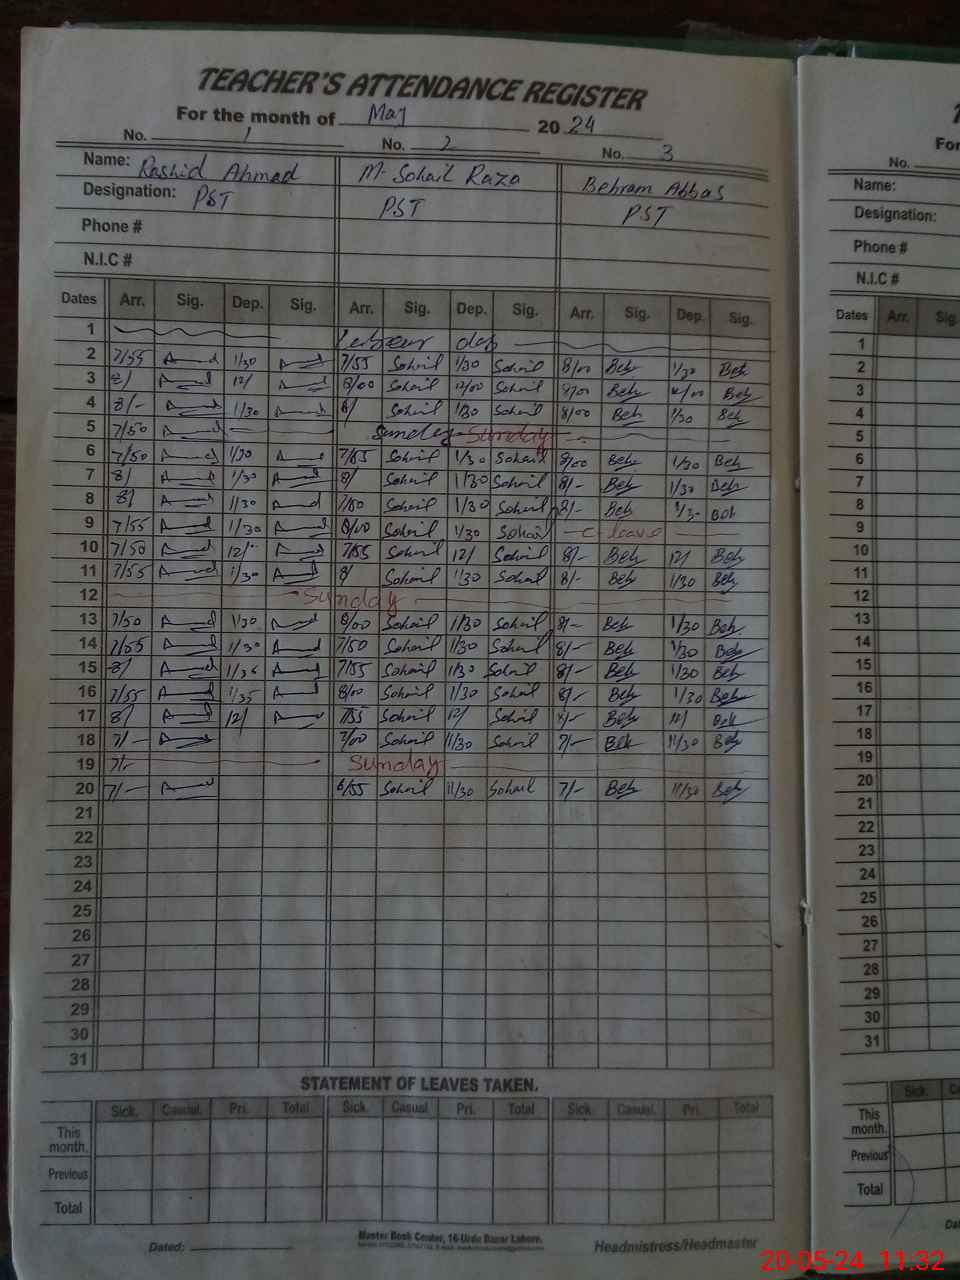 TEACHER'S ATTENDANCE REGISTER
For the month of May 20 24
No. 1 No. 2 No. 3
Name: Rashid Ahmad M. Sohail Raza Behram Abbas
Designation: PST PST PST
Phone #
N.I.C #
Dates Arr. Sig. Dep. Sig. Arr. Sig. Dep. Sig. Arr. Sig. Dep. Sig.
1 day
2 7/55 1/30 7/55 Sohail 1/30 Sohail 8/00 Beh 1/30 Beh
3 8/ 12/ 8/00 Sohail 12/00 Sohail 8/00 Beh Beh
4 8/- 1/30 8/ Sohail 1/30 Sohail 8/00 Beh 1/30 Beh
5 7/50 Sunday Sunday
6 7/50 1/30 7/55 Sohail 1/30 Sohail 8/00 Beh 1/30 Beh
7 8/ 1/30 8/ Sohail 1/30 Sohail 8/- Beh 1/30 Beh
8 8/ 1/30 7/50 Sohail 1/30 Sohail 8/- Beh 1/30 Beh
9 7/55 1/30 8/00 Sohail 1/30 Sohail C-leave
10 7/50 12/ 7/55 Sohail 12/ Sohail 8/- Beh 12/ Beh
11 7/55 1/30 8/ Sohail 1/30 Sohail 8/- Beh 1/30 Beh
12 Sunday
13 7/50 1/30 8/00 Sohail 1/30 Sohail 8/- Beh 1/30 Beh
14 7/55 1/30 7/50 Sohail 1/30 Sohail 8/- Beh 1/30 Beh
15 8/ 1/35 7/55 Sohail 1/30 Sohail 8/- Beh 1/30 Beh
16 7/55 1/35 8/00 Sohail 1/30 Sohail 8/- Beh 1/30 Beh
17 8/ 12/ 7/55 Sohail 12/ Sohail Beh 12/ Beh
18 7/- 7/00 Sohail 11/30 Sohail 7/- Beh 11/30 Beh
19 7/- Sunday
20 7/- 6/55 Sohail 11/30 Sohail 7/- Beh 11/30 Beh
21
22
23
24
25
26
27
28
29
30
31
STATEMENT OF LEAVES TAKEN.
Sick. Casual. Pri. Total Sick. Casual Pri. Total Sick. Casual. Pri. Total
This month.
Previous
Total
Dated: Master Book Center, 16-Urdu Bazar Lahore. Headmistress/Headmaster
For
No.
Name:
Designation:
Phone #
N.I.C #
Dates Arr. Sig.
1
2
3
4
5
6
7
8
9
10
11
12
13
14
15
16
17
18
19
20
21
22
23
24
25
26
27
28
29
30
31
Sick.
This month.
Previous
Total
20-05-24 11:32